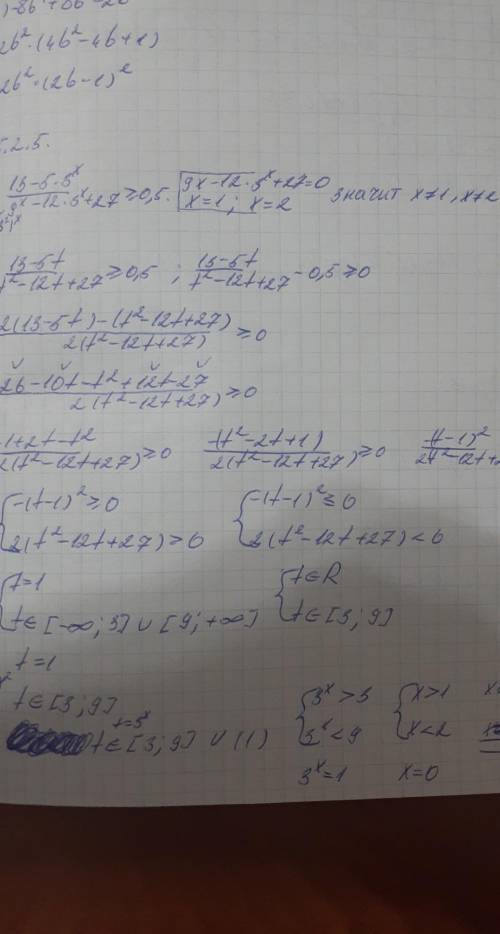 )-8b³+8b⁴-2b
2b²·(4b²-4b+1)
2b²·(2b-1)²
5.2.5.
13-5·3ˣ / 9ˣ-12·3ˣ+27 ≥0,5. 9x-12·3ˣ+27=0 x=1; x=2 значит x≠1, x≠2
13-5t / t²-12t+27 ≥0,5 ; 13-5t / t²-12t+27 -0,5≥0
2(13-5t)-(t²-12t+27) / 2(t²-12t+27) ≥0
26-10t-t²+12t-27 / 2(t²-12t+27) ≥0
-1+2t-t² / 2(t²-12t+27) ≥0 -(t²-2t+1) / 2(t²-12t+27) ≥0 (t-1)² / 2t²-12t+2
{-(t-1)²≥0 {-(t-1)²≤0
2(t²-12t+27)>0 2(t²-12t+27)<0
{t=1 {t∈R
t∈[-∞;3]∪[9;+∞] t∈[3;9]
t=1
t∈[3;9]
t=3ˣ
t∈[3;9]∪(1)
{3ˣ>3 {x>1
3ˣ<9 x<2
3ˣ=1 x=0